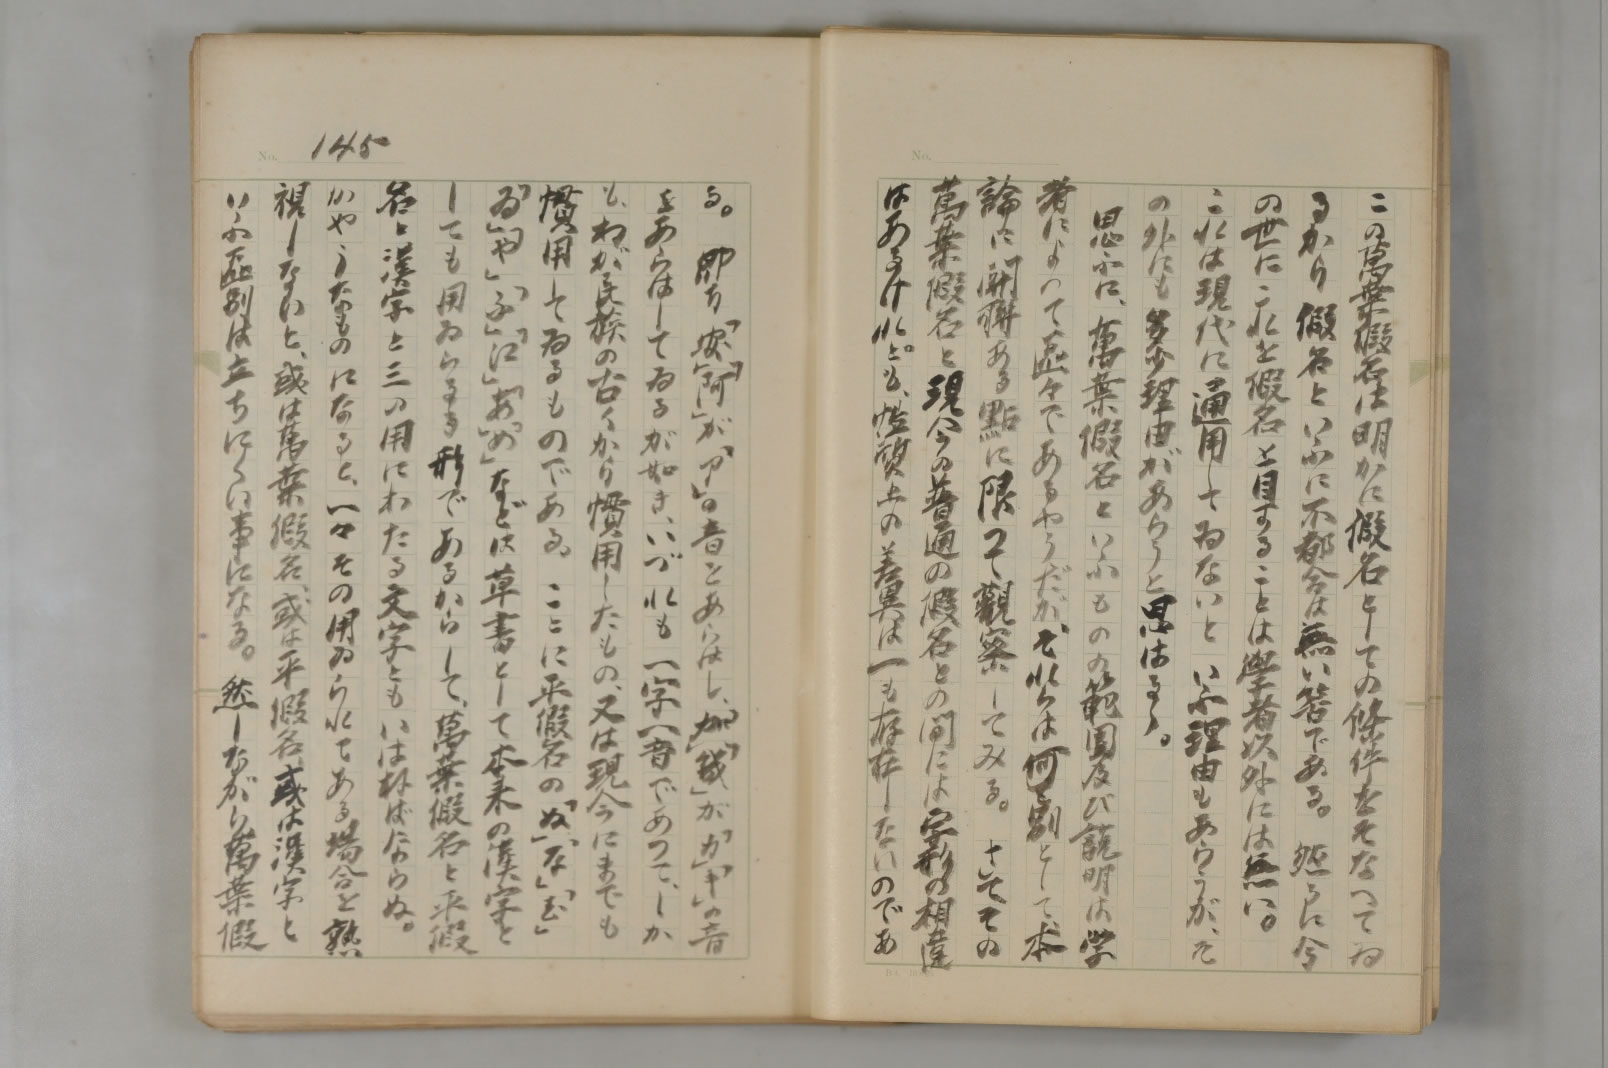 この萬葉假名は明かに假名としての條件をそなへてゐ
るから假名といふに不都合は無い筈である。然るに今
の世にこれを假名と目することは學者以外には無い。
これは現代に通用してゐないといふ理由もあらうが、そ
の外にも多少理由があらうと思はるゝ。
思ふに、萬葉假名といふものの範圍及び説明は学
者によつて區々であるやうだが、それらは何れ別として、本
論に關聯ある點に限つて觀察してみる。さてその
萬葉假名と現今の普通の假名との間には字形の相違
はあるけれども、性質上の差異は一も存在しないのであ
No.
No. 145
る。即ち「安」「阿」が「ア」の音をあらはし、「加」「我」が「カ」「ガ」の音
をあらはしてゐるが如き、いづれも一字一音であつて、しか
も、わが民族の古くから慣用したもの、又は現今にまでも
慣用してゐるものである。ここに平假名の「ぬ」「な」「む」
「ゐ」「や」「ふ」「江」「お」「め」などは草書として本来の漢字と
しても用ゐらるる形であるからして、萬葉假名と平假
名と漢字と三の用にわたる文字ともいはねばならぬ。
かやうなものになると、一々その用ゐられてある場合を熟
視しないと、或は萬葉假名、或は平假名、或は漢字と
いふ區別は立ちにくい事になる。然しながら萬葉假